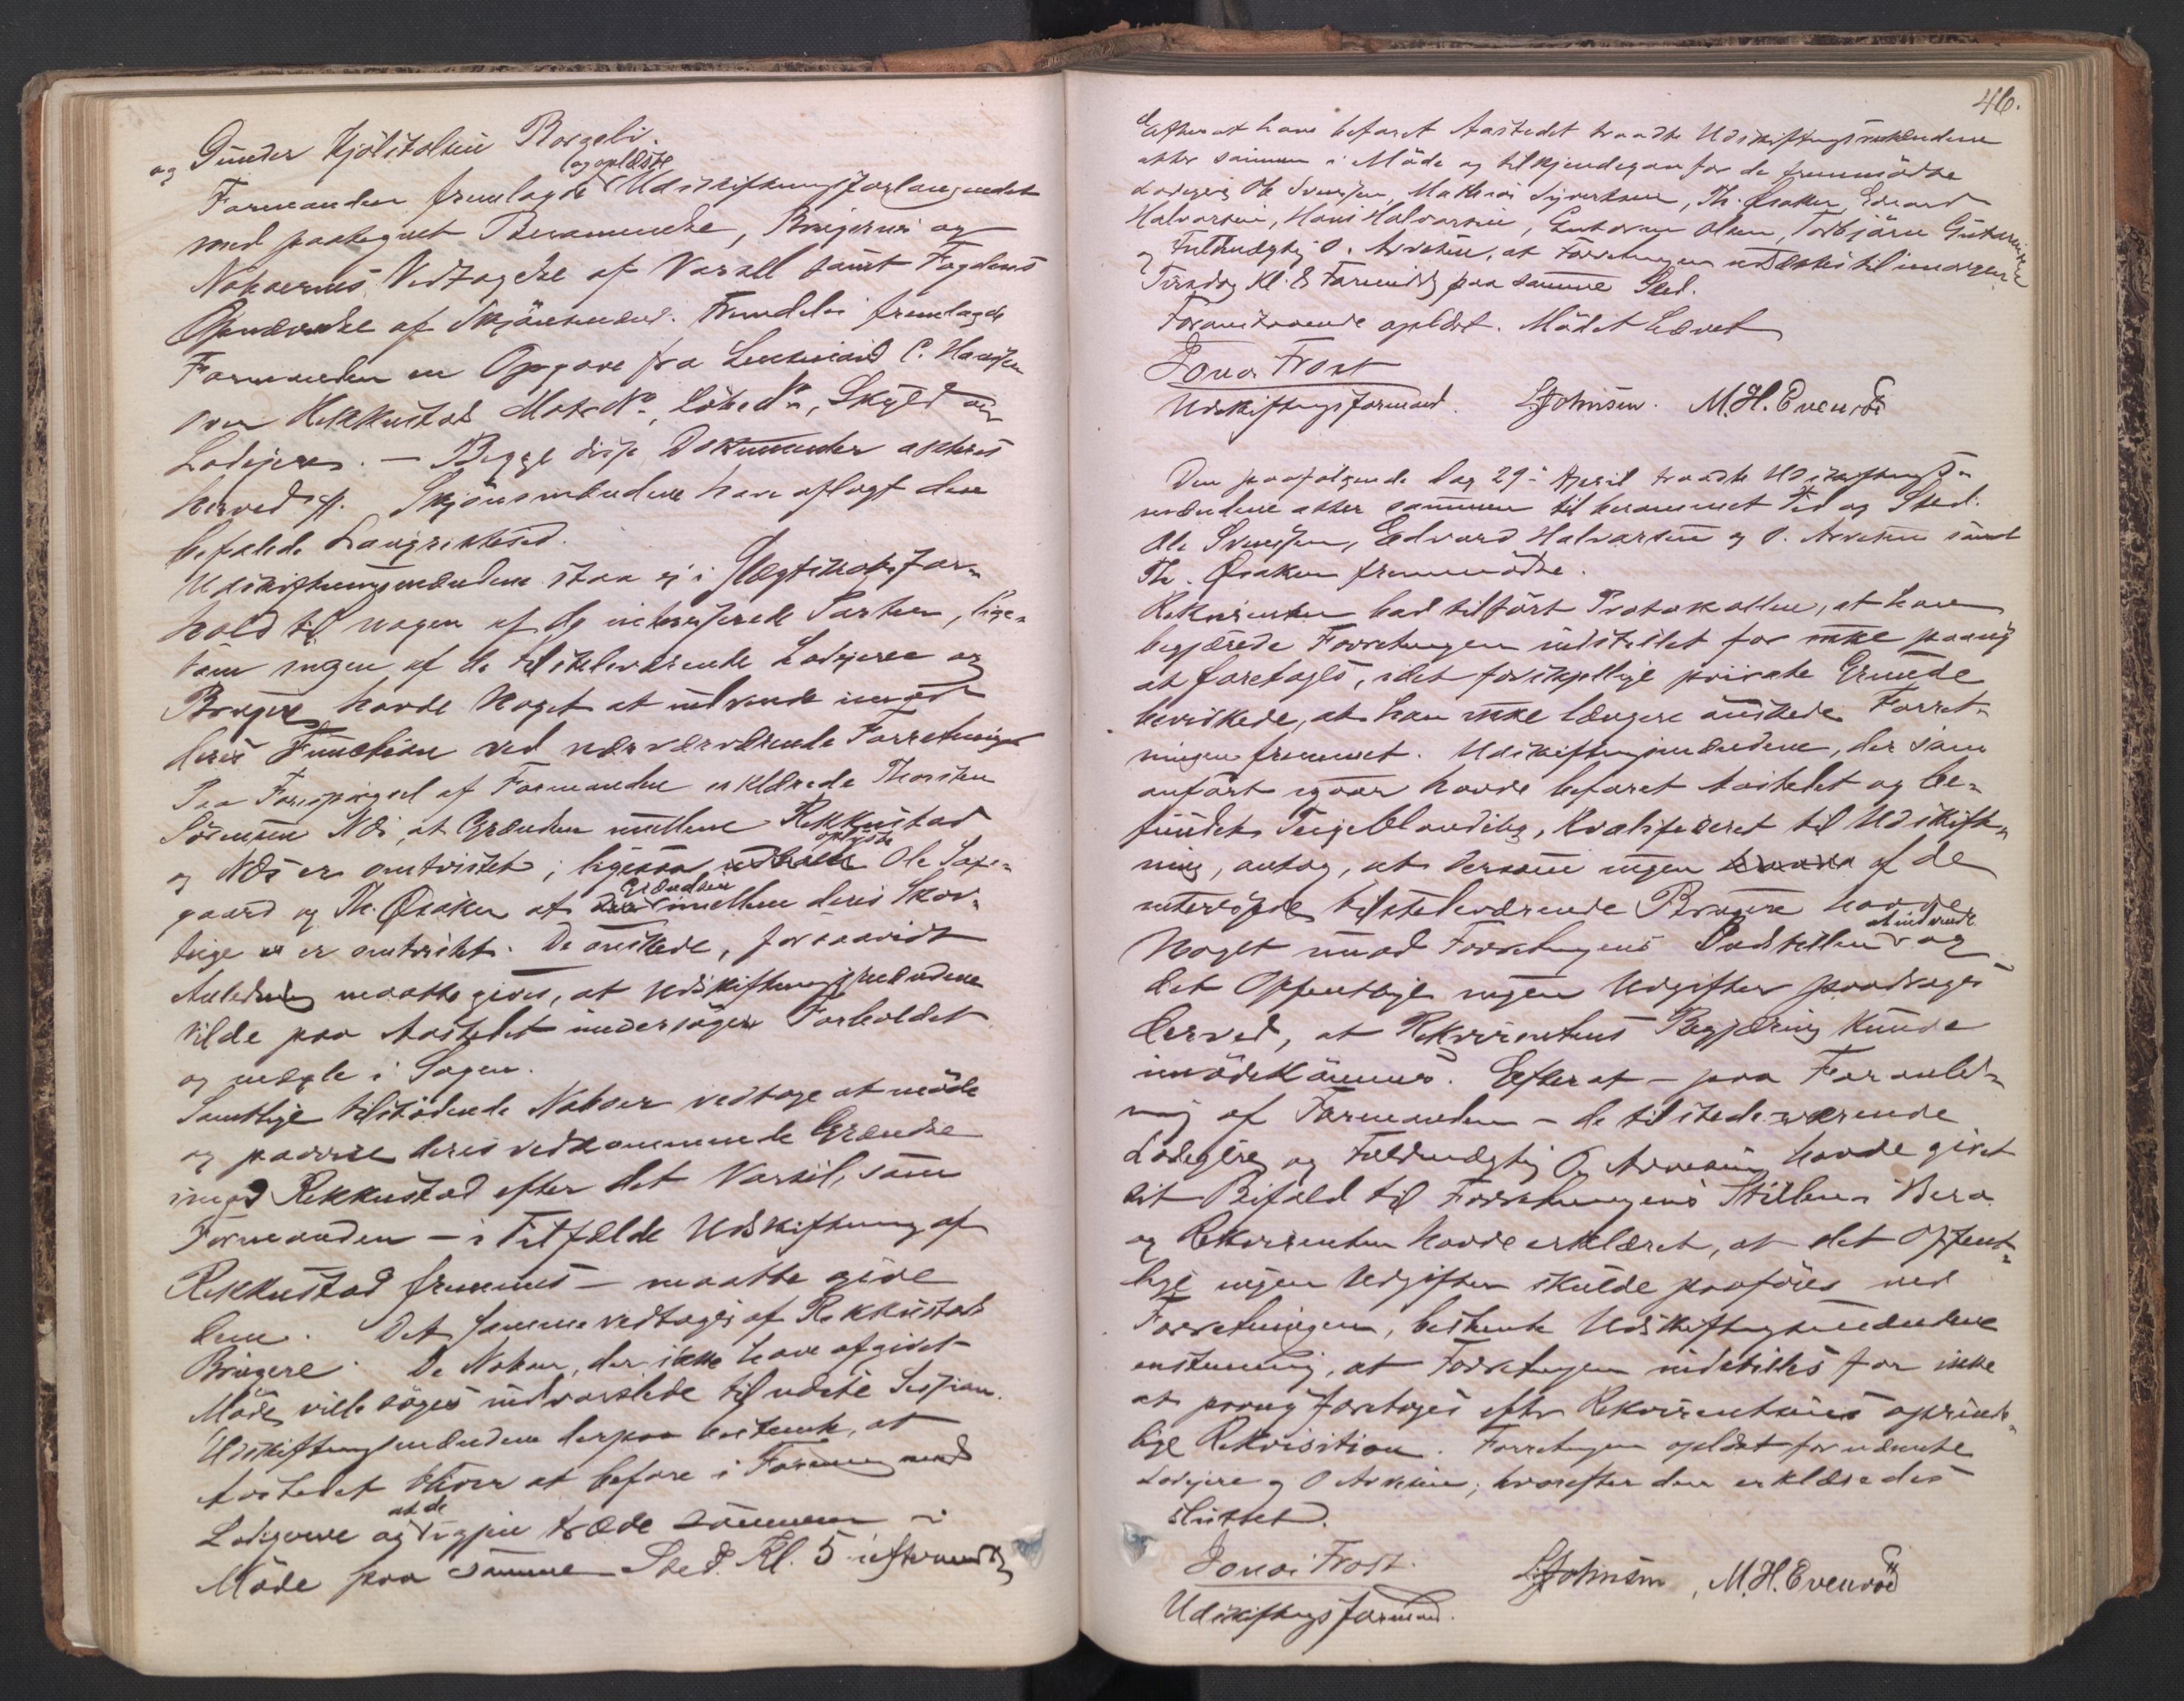 og Gunder Kjölstolsen Borgeli.
Formanden fremlagde og oplæste Udskiftningsforlangendet
med paategnet Berammelse, Brugernes og
Naboernes Vedtagelse af Varsel samt Fogdens
Opnævnelse af Skjönsmænd. Fremdeles fremlagde
Formanden en Opgave fra Lensmand C. Hansen
over Rekkustad Matr. No, Löbe No, Skyld og
Lodejere. — Begge disse Dokumenter akteres
herved. Skjönsmændene have aflagt den
befalede Laugrettesed.
Udskiftningsmændene staa ej i Slægtskabsfor-
hold til nogen af de interesserede Parter, lige-
som ingen af de tilstedeværende Lodejere og
Brugere havde Noget at indvende imod
deres Function ved nærværende Forretning.
Paa Forespörgsel af Formanden erklærede Thorsten
Sörensen Næs, at Grændsen mellem Rekkustad
og Næs er omtvistet; ligesaa oplyste Ole
gaard og Th. Øsaker at Grændsen imellem deres Skov-
teige er omtvistet. De önskede, forsaavidt
Anledning maatte gives, at Udskiftningsmændene
vilde paa Aastedet undersöge Forholdet
og mægle i Sagen.
Samtlige tilstödende Naboer vedtoge at möde
og paavise deres vedkommende Grændse
imod Rekkustad efter det Varsel, som
Formanden — i Tilfælde Udskiftning af
Rekkustad fremmes — maatte give
dem. Det samme vedtages af Rekkustads
Brugere. De Naboer, der ikke have afgivet
Möde, ville söges indvarslede til næste Session.
Udskiftningsmændene derpaa bestemte, at
Aastedet bliver at befare i Forening med
Lodejerne og at de igjen træde sammen i
Möde paa samme Sted Kl. 5 i eftermidg
46.
Efter at have befaret Aastedet traadte Udskiftningsmændene
atter sammen i Möde og tilkjendegav for de fremmödte
Lodejere Ole Svensen, Mathias Syvertsen, Th. Øsaker, Edvard
Halvorsen, Hans Halvorsen, Olsen, Torbjörn
og Fuldmægtig O. Arvesen, at Forretningen udsættes til imorgen
Tirsdag Kl. 8 Formidg paa samme Sted.
Foranstaaende oplæst. Mödet hævet
Jonas Frost
Udskiftningsformand. L. Johnsen. M. H. Evenröd
Den paafölgende Dag 29de April traadte Udskiftnings-
mændene atter sammen til berammet Tid og Sted.
Ole Svensen, Edvard Halvorsen og O. Arvesen samt
Th. Øsaker fremmödte.
Rekvirenten bad tilfört Protokollen, at han
begjærede Forretningen indstillet for ikke paany
at foretages, idet forskjellige private Grunde
bevirkede, at han ikke længere önskede Forret-
ningen fremmet. Udskiftningsmændene, der som
anfört igaar havde befaret Aastedet og be-
fundet Teigeblanding, kvalificeret til Udskift-
ning, antog, at dersom ingen af de
interesserede tilstedeværende Brugere havde
Noget imod Forretningens Indstillen at indvende og
det Offentlige ingen Udgifter paadrages
derved, at Rekvirentens Begjæring kunde
imödekommes. Efterat — paa Foranled-
ning af Formanden — de tilstedeværende
Lodejere og Fuldmægtig O. Arvesen havde givet
sit Bifald til Forretningens Stillen i Bero
og Rekvirenten havde erklæret, at det Offent-
lige ingen Udgifter skulde paaföres ved
Forretningen, bestemte Udskiftningsmændene
enstemmig, at Forretningen indstilles for ikke
at paany foretages efter Rekvirentens oprinde-
lige Rekvisition. Forretningen oplæst for nævnte
Lodejere og O Arvesen; hvorefter den erklæredes
sluttet.
Jonas Frost.
Udskiftningsformand. L. Johnsen, M. H. Evenröd